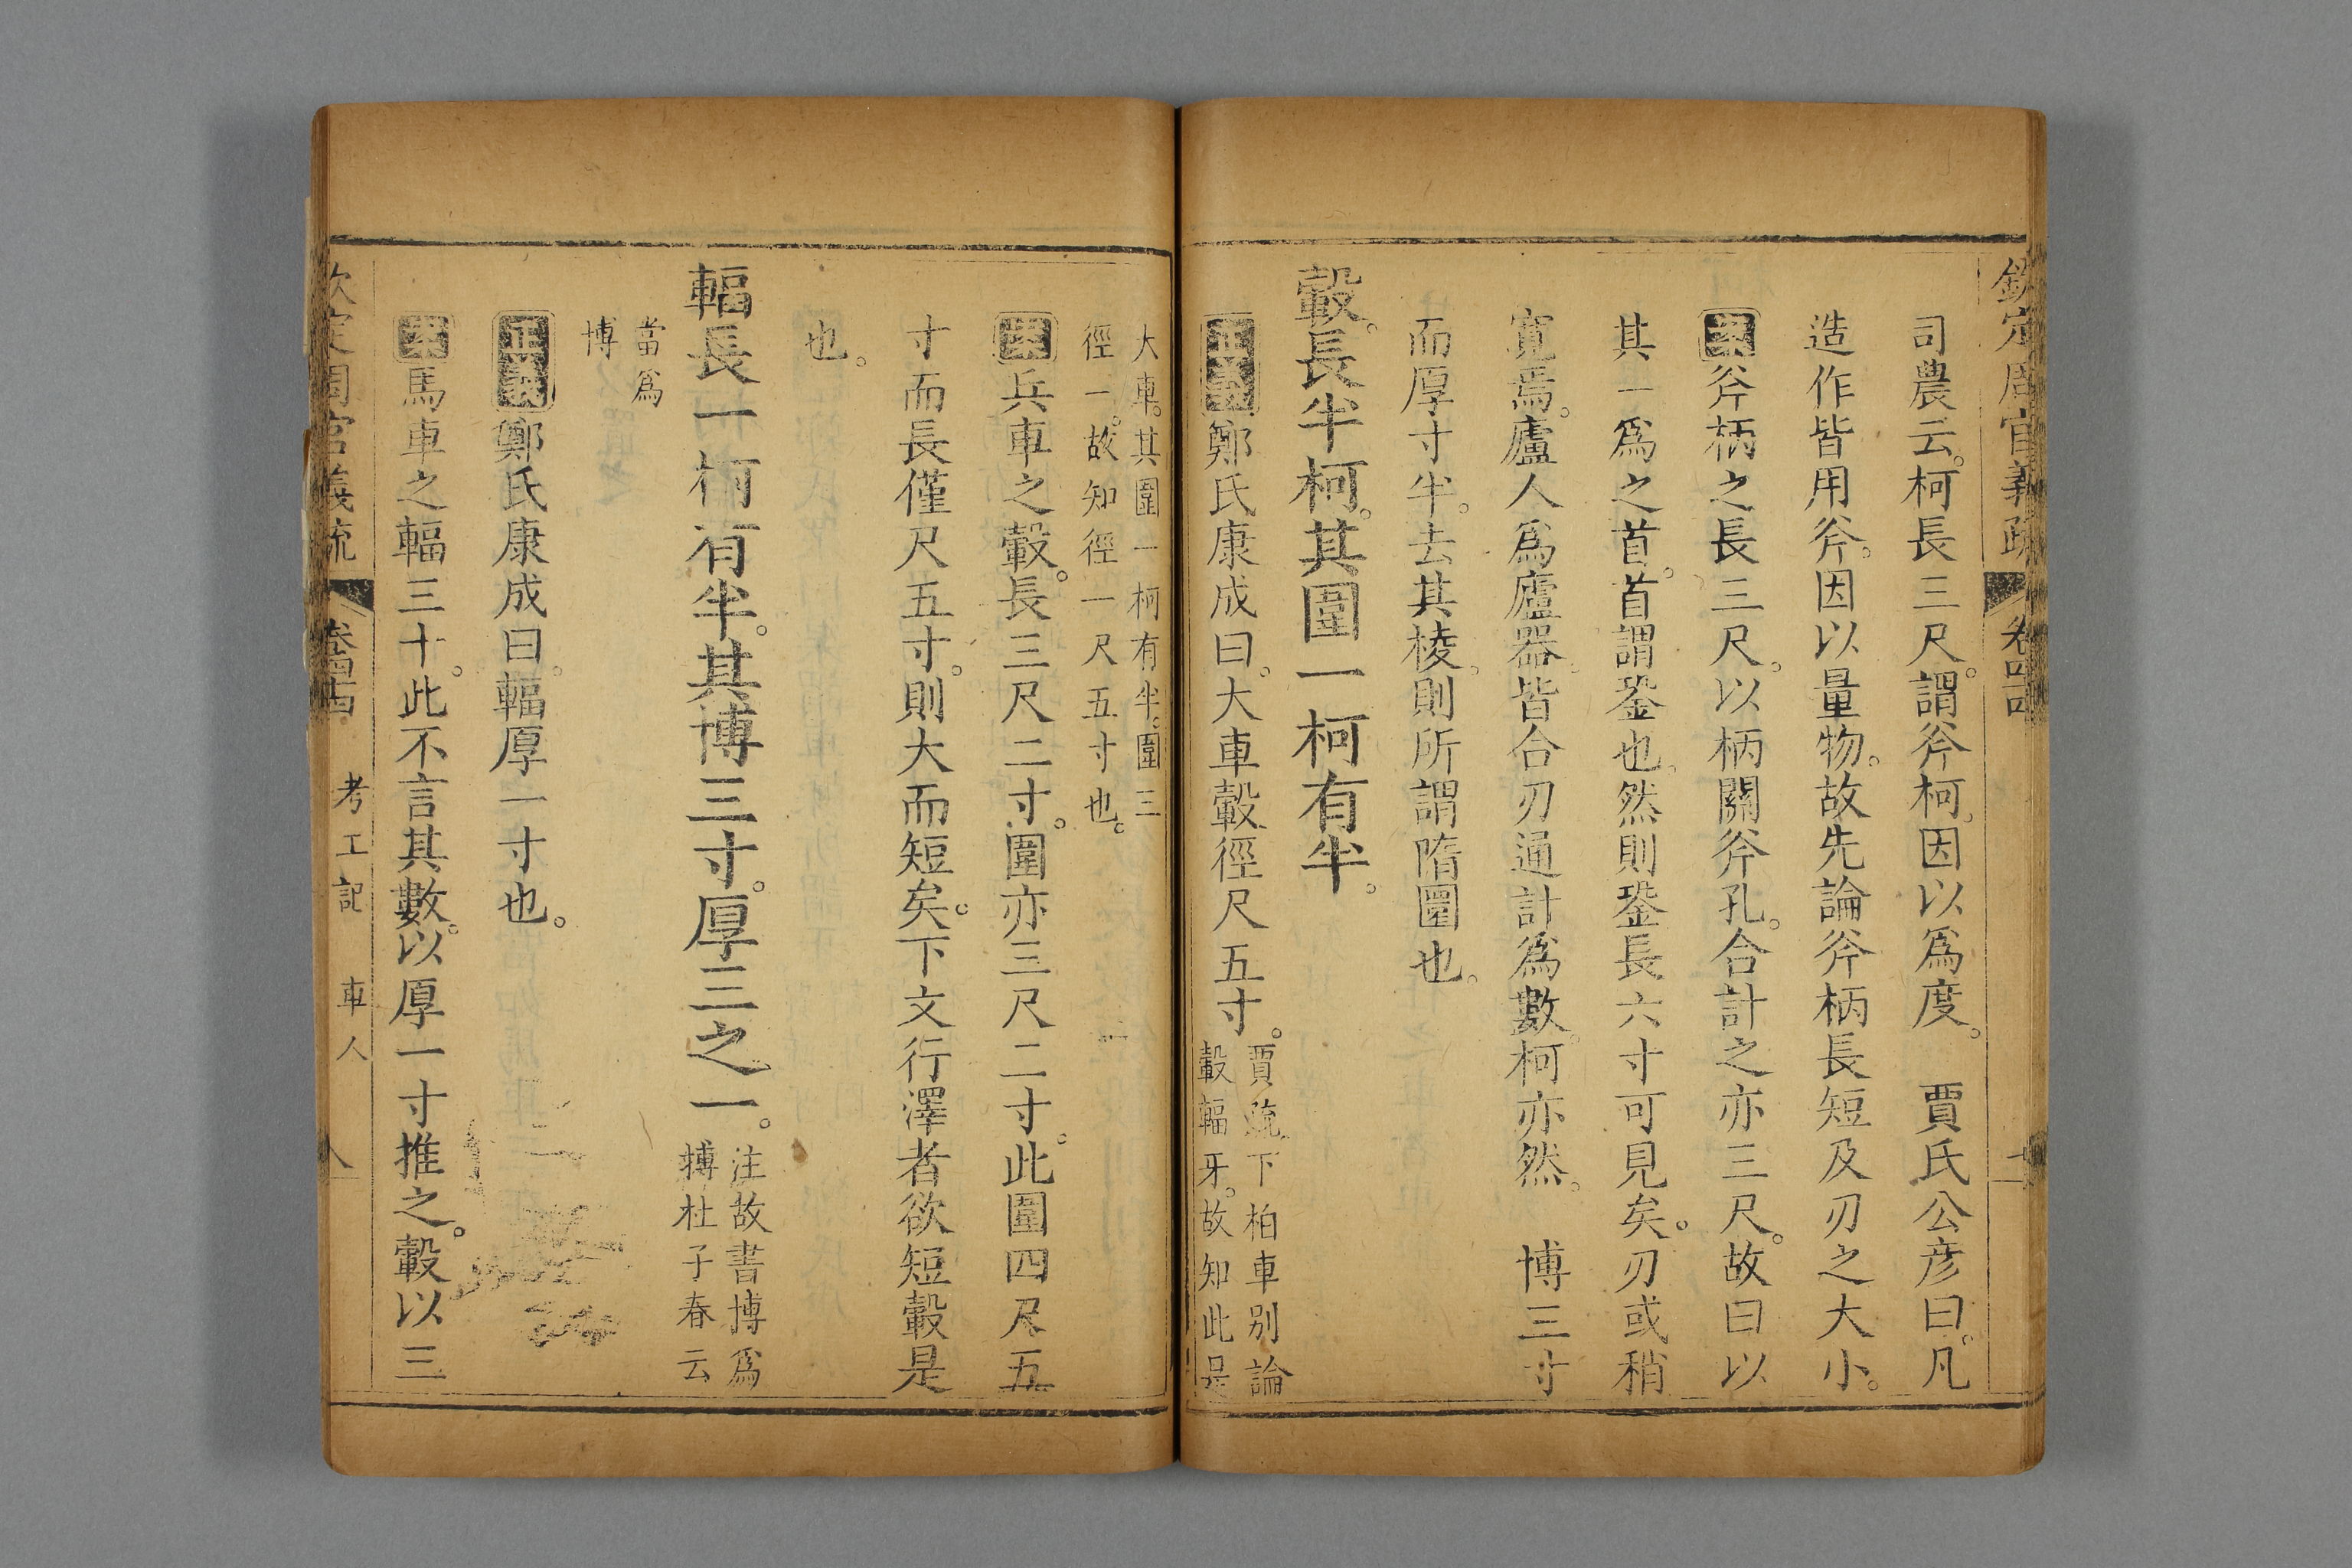 欽定周官義疏 卷四十四
司農云。柯長三尺。謂斧柯。因以爲度。 賈氏公彦曰。凡
造作皆用斧。因以量物。故先論斧柄長短及刃之大小。
案斧柄之長三尺。以柄關斧孔。合計之亦三尺。故曰以
其一爲之首。首謂銎也。然則銎長六寸可見矣。刃或稍
寬焉。廬人爲廬器。皆合刃通計爲數。柯亦然。 博三寸
而厚寸半。去其棱。則所謂隋圜也。
轂。長半柯。其圍一柯有半。
正義鄭氏康成曰。大車轂徑尺五寸。
賈疏下柏車別論
轂輻牙。故知此是
大車。其圍一柯有半。圍三
徑一。故知徑一尺五寸也。
案兵車之轂。長三尺二寸。圍亦三尺二寸。此圍四尺五
寸而長僅尺五寸。則大而短矣。下文行澤者欲短轂是
也。
輻長一柯有半。其博三寸。厚三之一。
注故書博爲
搏杜子春云
當爲
博
正義鄭氏康成曰。輻厚一寸也。
案馬車之輻三十。此不言其數。以厚一寸推之。轂以三
欽定周官義疏 卷四十四 考工記 車人 八